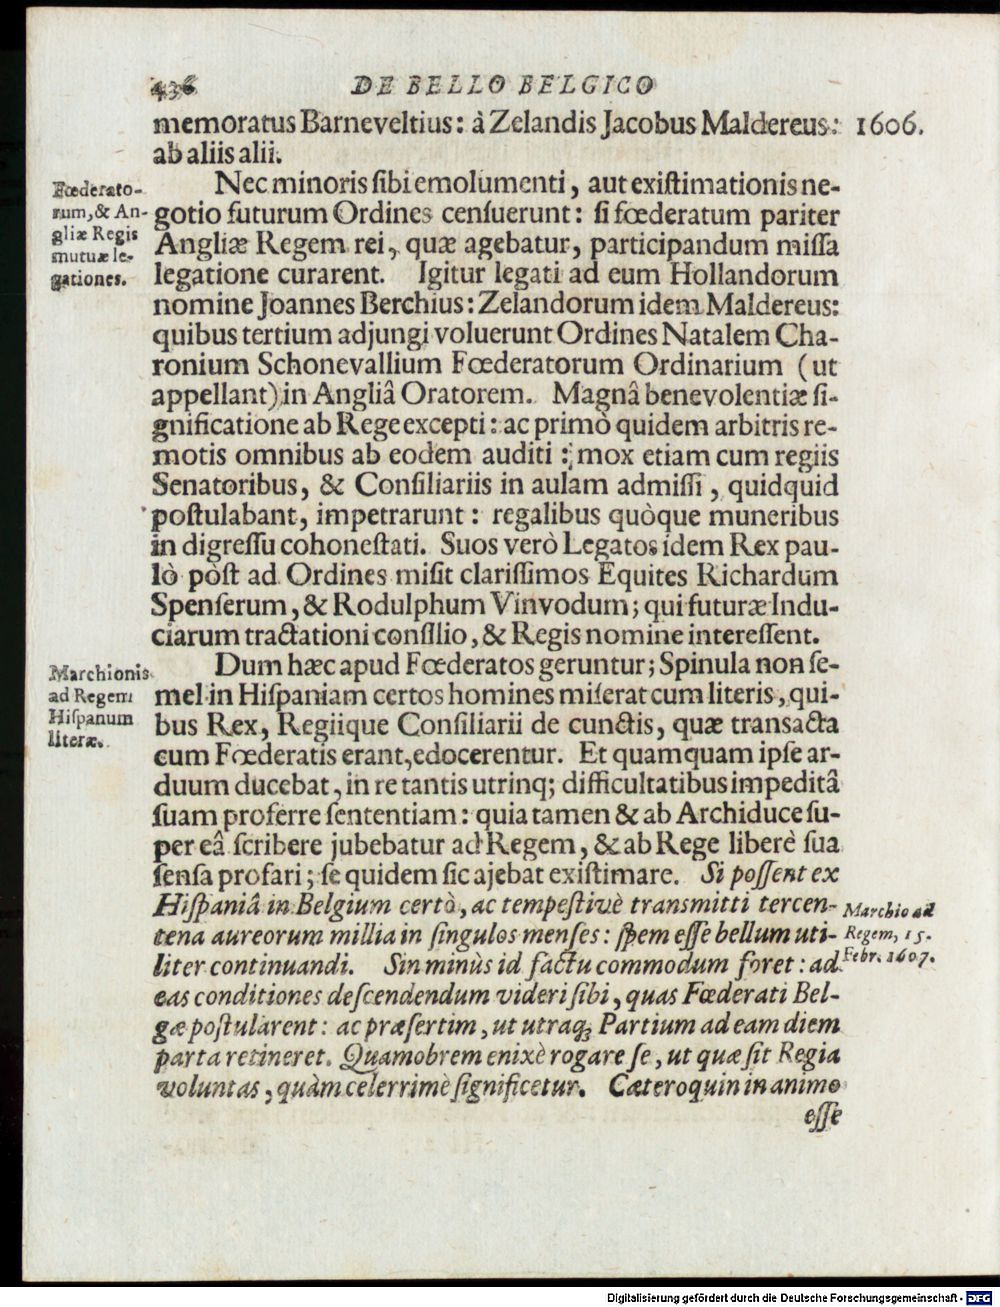 436 DE BELLO BELGICO
memoratus Barneveltius: à Zelandis Jacobus Maldereus: 1606.
ab aliis alii.
Fœderato-
rum, & An-
gliæ Regis
mutuæ le-
gationes.
Nec minoris ſibi emolumenti, aut exiſtimationis ne-
gotio futurum Ordines cenſuerunt: ſi fœderatum pariter
Angliæ Regem rei, quæ agebatur, participandum miſſa
legatione curarent. Igitur legati ad eum Hollandorum
nomine Joannes Berchius: Zelandorum idem Maldereus:
quibus tertium adjungi voluerunt Ordines Natalem Cha-
ronium Schonevallium Fœderatorum Ordinarium (ut
appellant) in Angliâ Oratorem. Magnâ benevolentiæ ſi-
gnificatione ab Rege excepti: ac primò quidem arbitris re-
motis omnibus ab eodem auditi: mox etiam cum regiis
Senatoribus, & Conſiliariis in aulam admiſſi, quidquid
poſtulabant, impetrarunt: regalibus quòque muneribus
in digreſſu cohoneſtati. Suos verò Legatos idem Rex pau-
lò pòſt ad Ordines miſit clariſſimos Equites Richardum
Spenſerum, & Rodulphum Vinvodum; qui futuræ Indu-
ciarum tractationi conſilio, & Regis nomine intereſſent.
Marchionis
ad Regem
Hiſpanum
literæ.
Dum hæc apud Fœderatos geruntur; Spinula non ſe-
mel in Hiſpaniam certos homines miſerat cum literis, qui-
bus Rex, Regiique Conſiliarii de cunctis, quæ transacta
cum Fœderatis erant, edocerentur. Et quamquam ipſe ar-
duum ducebat, in re tantis utrinq; difficultatibus impeditâ
ſuam proferre ſententiam: quia tamen & ab Archiduce ſu-
per eâ ſcribere jubebatur ad Regem, & ab Rege liberè ſua
ſenſa profari; ſe quidem ſic ajebat exiſtimare. Si poſſent ex
Hiſpaniâ in Belgium certò, ac tempeſtivè transmitti tercen-
tena aureorum millia in ſingulos menſes: ſpem eſſe bellum uti-
liter continuandi. Sin minùs id factu commodum foret: ad
eas conditiones deſcendendum videri ſibi, quas Fœderati Bel-
gæ poſtularent: ac præſertim, ut utraq; Partium ad eam diem
parta retineret. Quamobrem enixè rogare ſe, ut quæ ſit Regia
voluntas, quàm celerrimè ſignificetur. Cæteroquin in animo
Marchio ad
Regem, 15.
Febr. 1607.
eſſe
Digitalisierung gefördert durch die Deutsche Forschungsgemeinschaft - DFG